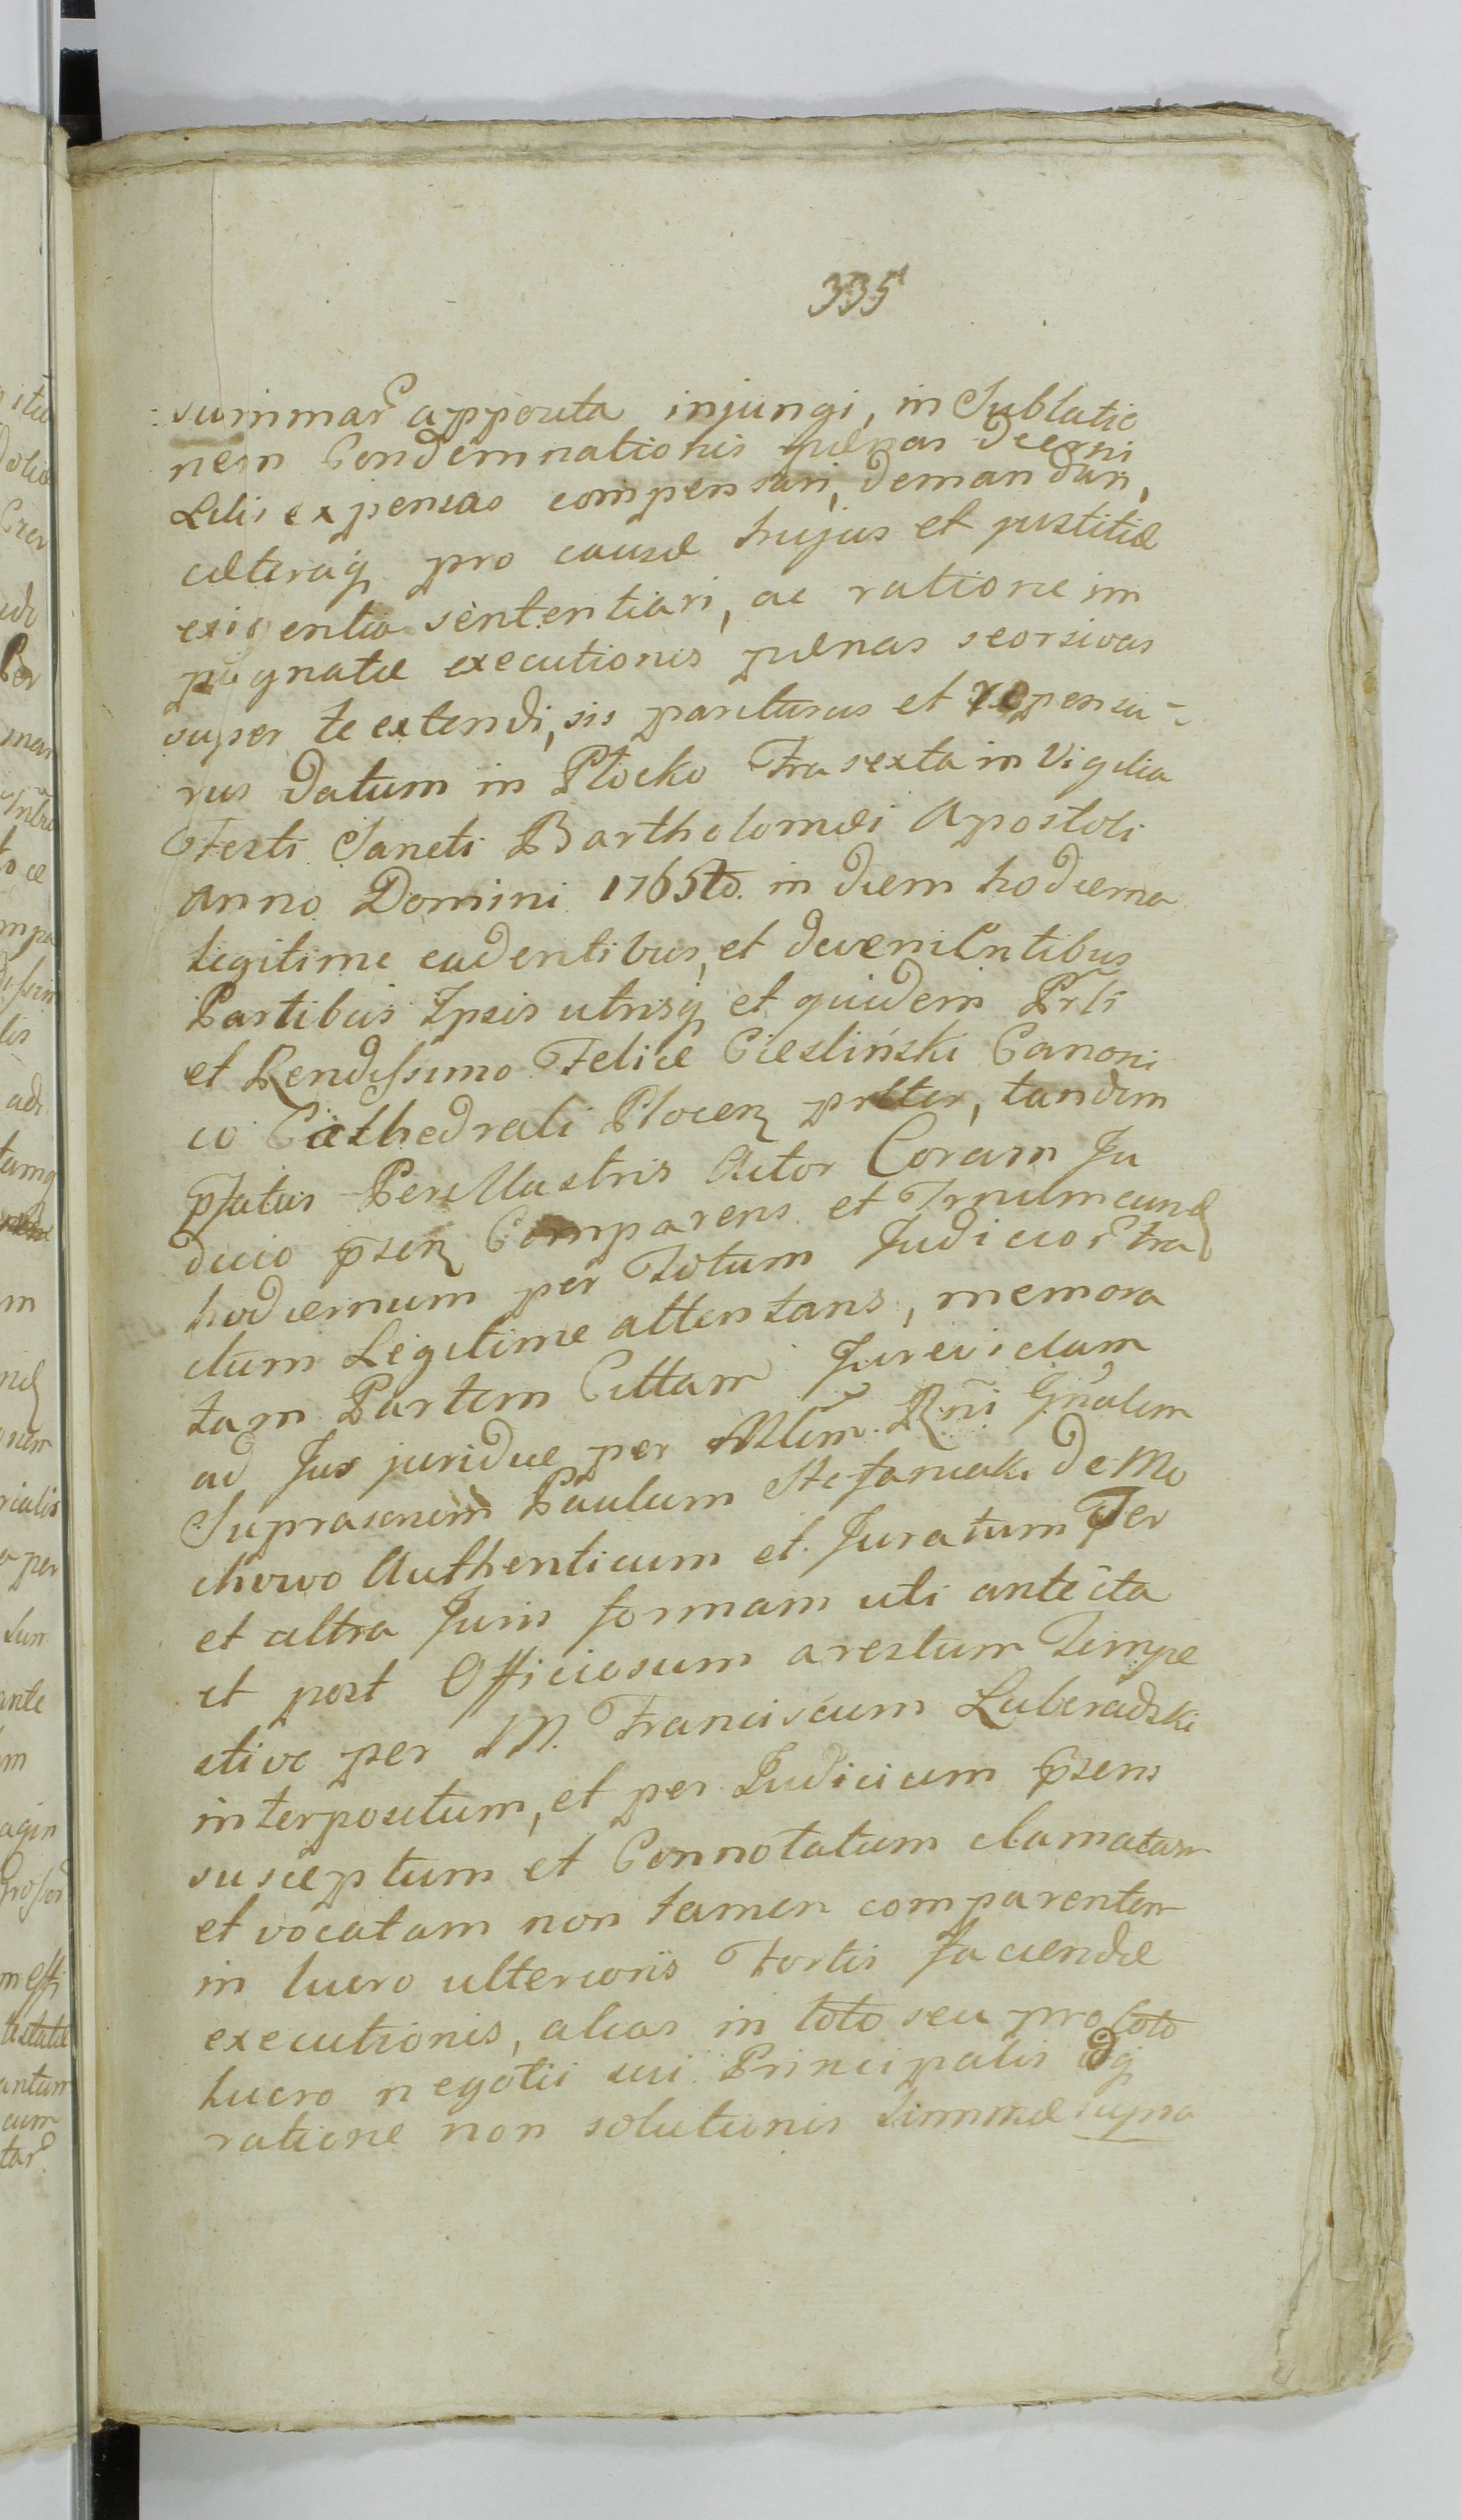 335
summar apposita injungi, in Sublatio
nem Condemnationis pænas decerni
Litis expensas compensari, demandari,
cæteraq pro causæ hujus et justitiæ
exigentia sententiari, ac ratione im
pugnatæ executionis pænas seorsivas
super te extendi, sis pariturus et repensu-
rus Datum in Plocko Fra sexta in Vigilia
Festi Sancti Bartholomæi Apostoli
Anno Domini 1765to. in diem hodierna
legitime cadentibus, et devenientibus
Partibus Ipsis utrisq et quidem Prli
et Rendissimo Felice Ciesliński Canoni
co Cathedrali Plocen, tandem
pstatus Perillustris Actor Coram Ju
dicio psen Comparens et Trnulm eund
hodiernum per Totum Judicior tra
ctum Legitime attentans, memora
tam Partem Cittam Jurevictam
ad Jus juridice per Mlem. Rni Gnalem
Suprascriem Paulum Stefaniak de Mo
chowo Authenticum et Juratum Ter
et ultra Juris formam uti antecita
et post Officiosum arestum Tempe
stive per M. Franciscum Luberadzki
interpositum, et per Judicium psens
susceptum et Connotatum clamatam
et vocatam non tamen comparentem
in lucro ulterioris Fortis faciendæ
executionis, alias in toto seu pro toto
lucro negotii sui Principalis idq
ratione non solutionis Summæ supra